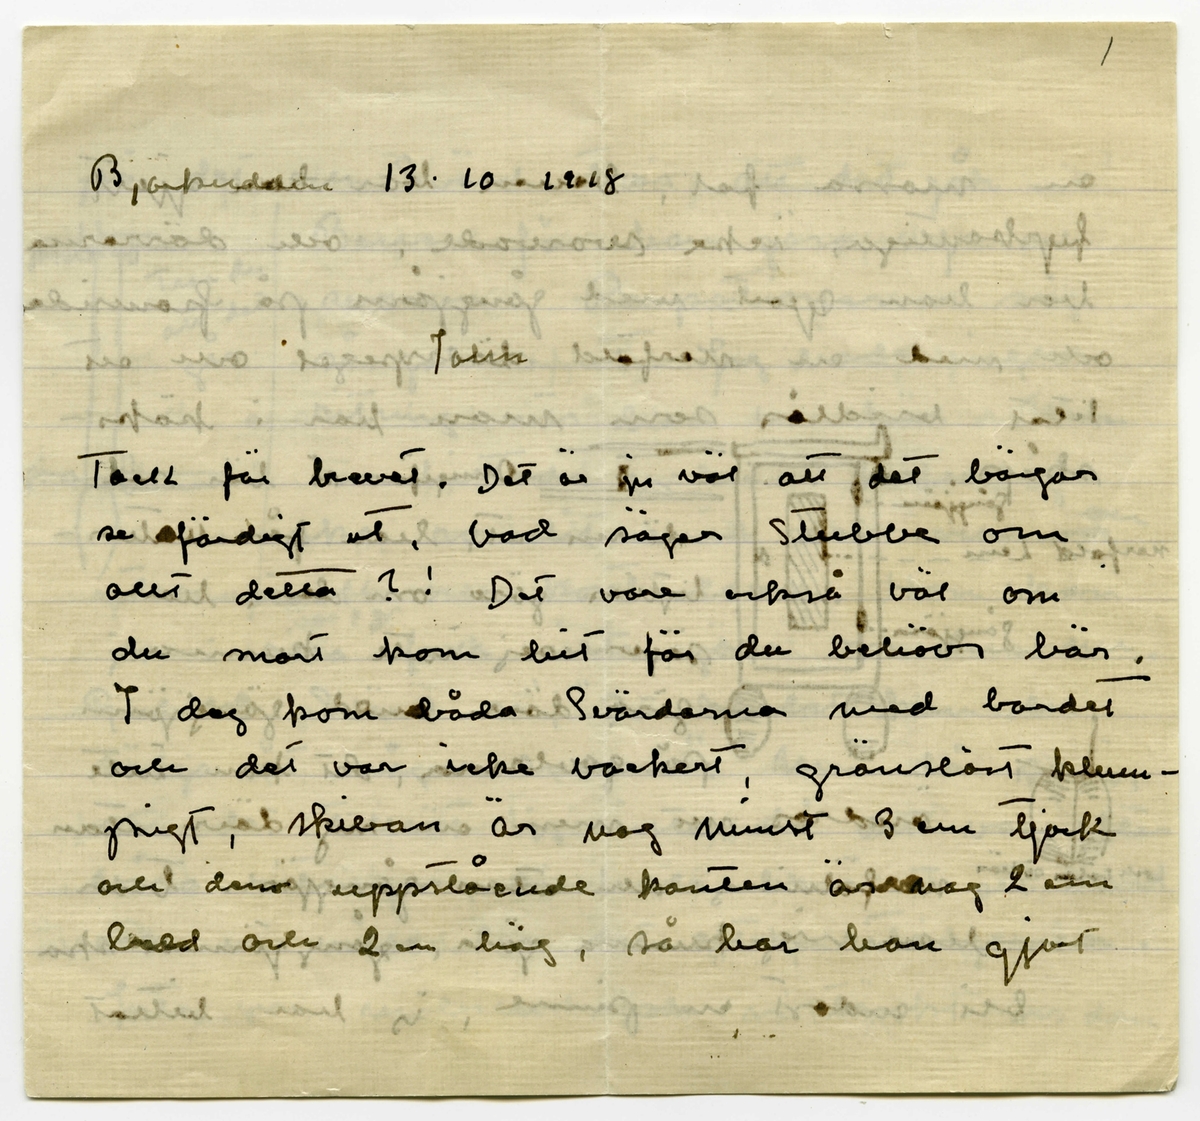 1
Björkudden 13. 10 1918
John
Tack för brevet. Det är ju väl att det börjar
se färdigt ut. Vad säger Stubbe om
allt detta?! Det vore också väl om
du snart kom hit för du behövs här.
I dag kom båda Svärderna med bordet
och det var icke vackert, gränslöst klum-
pigt, skivan är nog minst 3 cm tjock
och den uppstående kanten är nog 2 cm
bred och 2 cm hög, så har han gjort